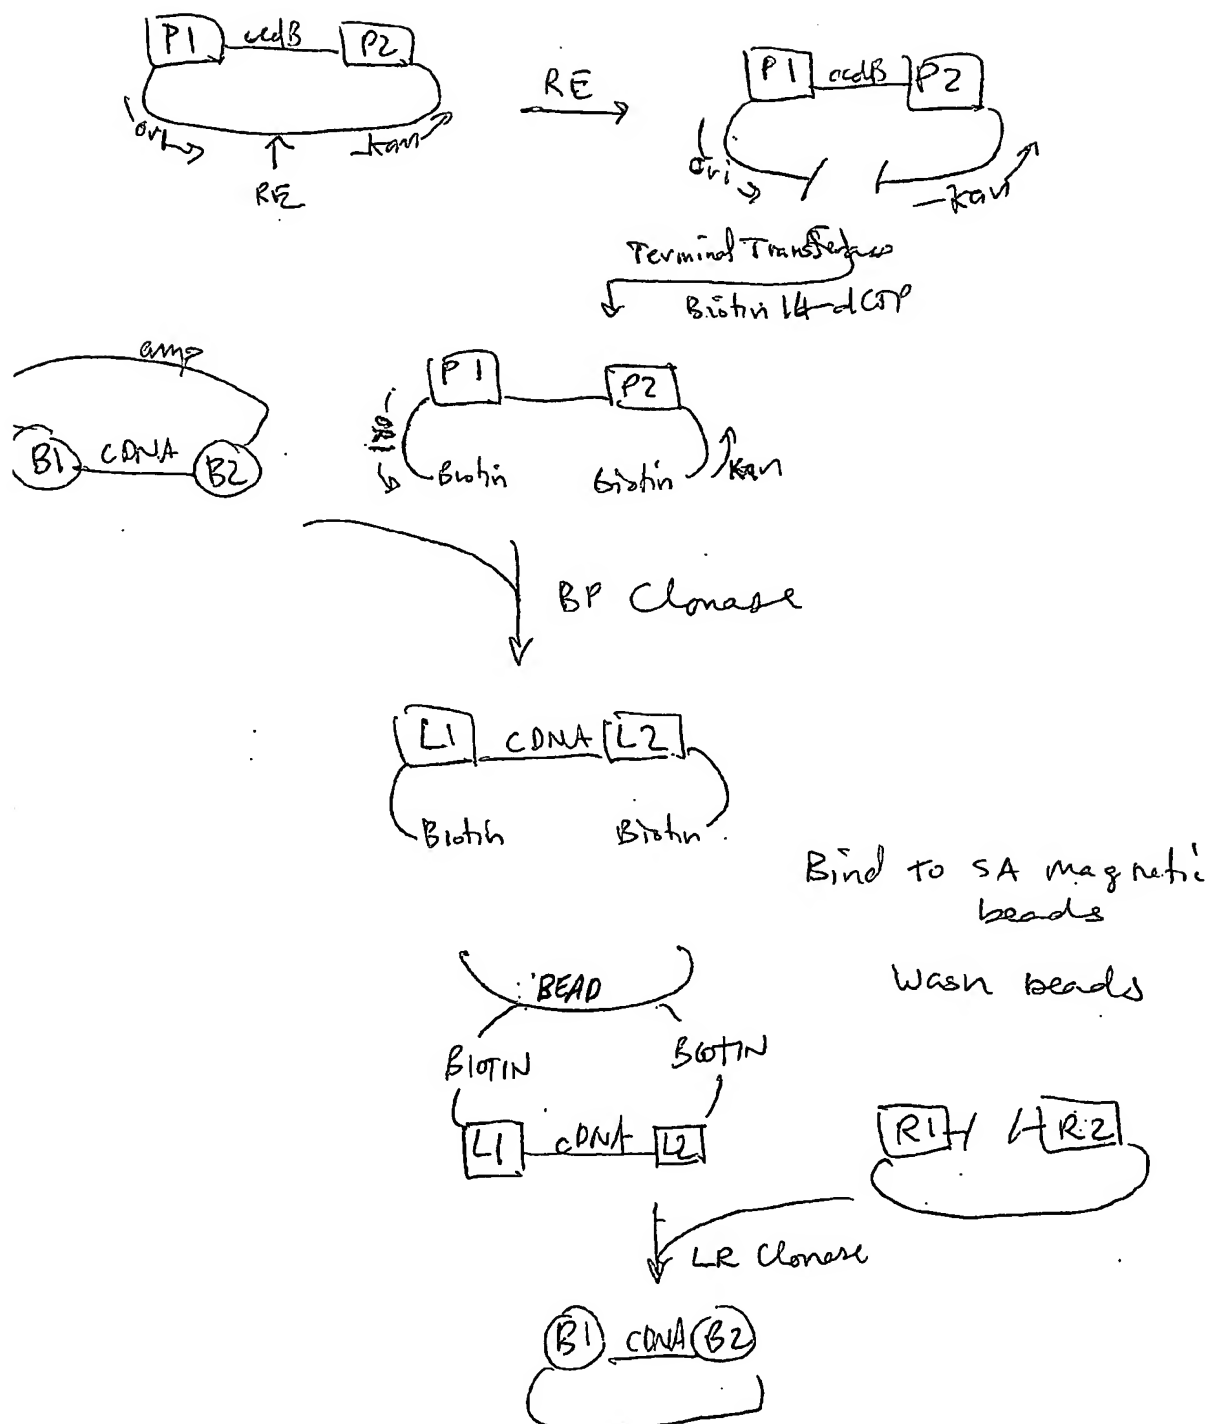 P1 ccdB P2
ori RE kan
RE
P1 ccdB P2
ori kan
Terminal Transferase
Biotin 14-dCTP
amp
B1 cDNA B2
P1 P2
ori Biotin Biotin kan
BP Clonase
L1 cDNA L2
Biotin Biotin
Bind to SA magnetic
beads
Wash beads
BEAD
BIOTIN BIOTIN
L1 cDNA L2
R1 R2
LR Clonase
B1 cDNA B2